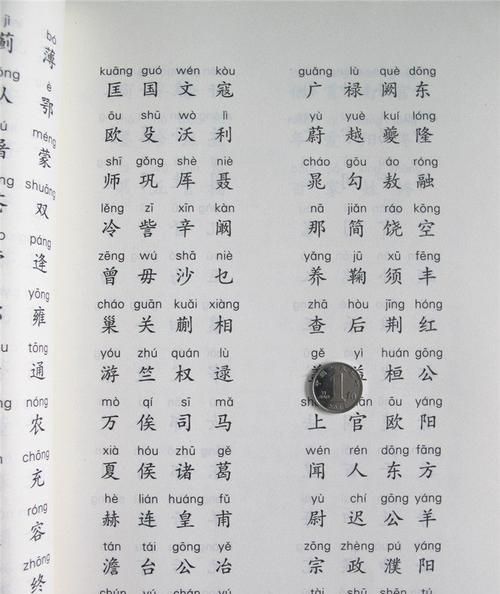 jì bó
蓟 薄
è
人 鄂
méng
蒙
shuāng
双
páng
逄
yōng
雍
tōng
通
nóng
农
chōng
充
róng
容
zhōng
终
kuāng guó wén kòu guǎng lù què dōng
匡 国 文 寇 广 禄 阙 东
ōu shū wò lì yù yuè kuí lóng
欧 殳 沃 利 蔚 越 夔 隆
shī gǒng shè niè cháo gōu áo róng
师 巩 厍 聂 晁 勾 敖 融
lěng zī xīn kàn nā jiǎn ráo kōng
冷 訾 辛 阚 那 简 饶 空
zēng wú shā niè yǎng jū xū fēng
曾 毋 沙 乜 养 鞠 须 丰
cháo guān kuǎi xiàng zhā hòu jīng hóng
巢 关 蒯 相 查 后 荆 红
yóu zhú quán lù gě yì huán gōng
游 竺 权 逯 桓 公
mò qí sī mǎ guān ōu yáng
万 俟 司 马 上 官 欧 阳
xià hóu zhū gě wén rén dōng fāng
夏 侯 诸 葛 闻 人 东 方
hè lián huáng fǔ yù chí gōng yáng
赫 连 皇 甫 尉 迟 公 羊
tán tái gōng yě zōng zhèng pú yáng
澹 台 公 冶 宗 政 濮 阳